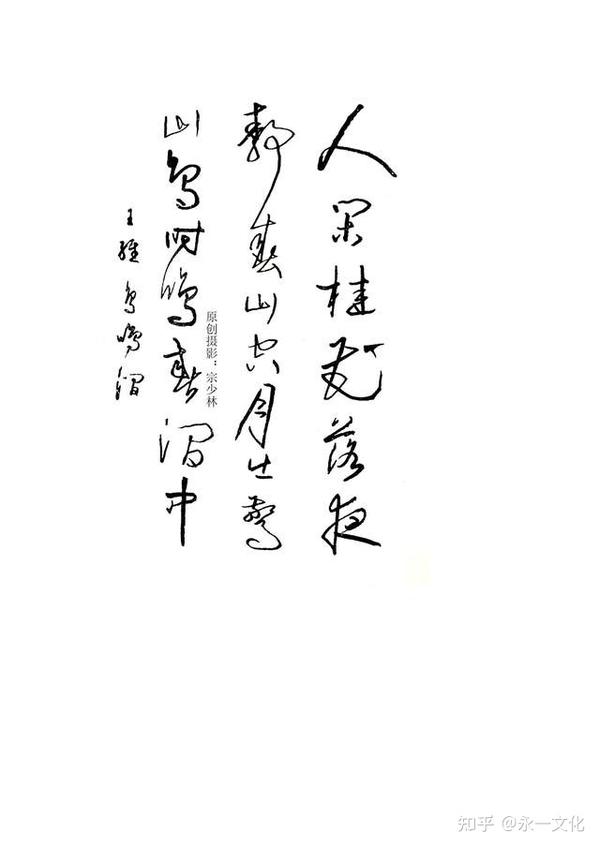 人闲桂花落夜
静春山空月出驚
山鸟时鸣春涧中
王维鸟鸣涧
原创摄影：宗少林
知乎 @永一文化